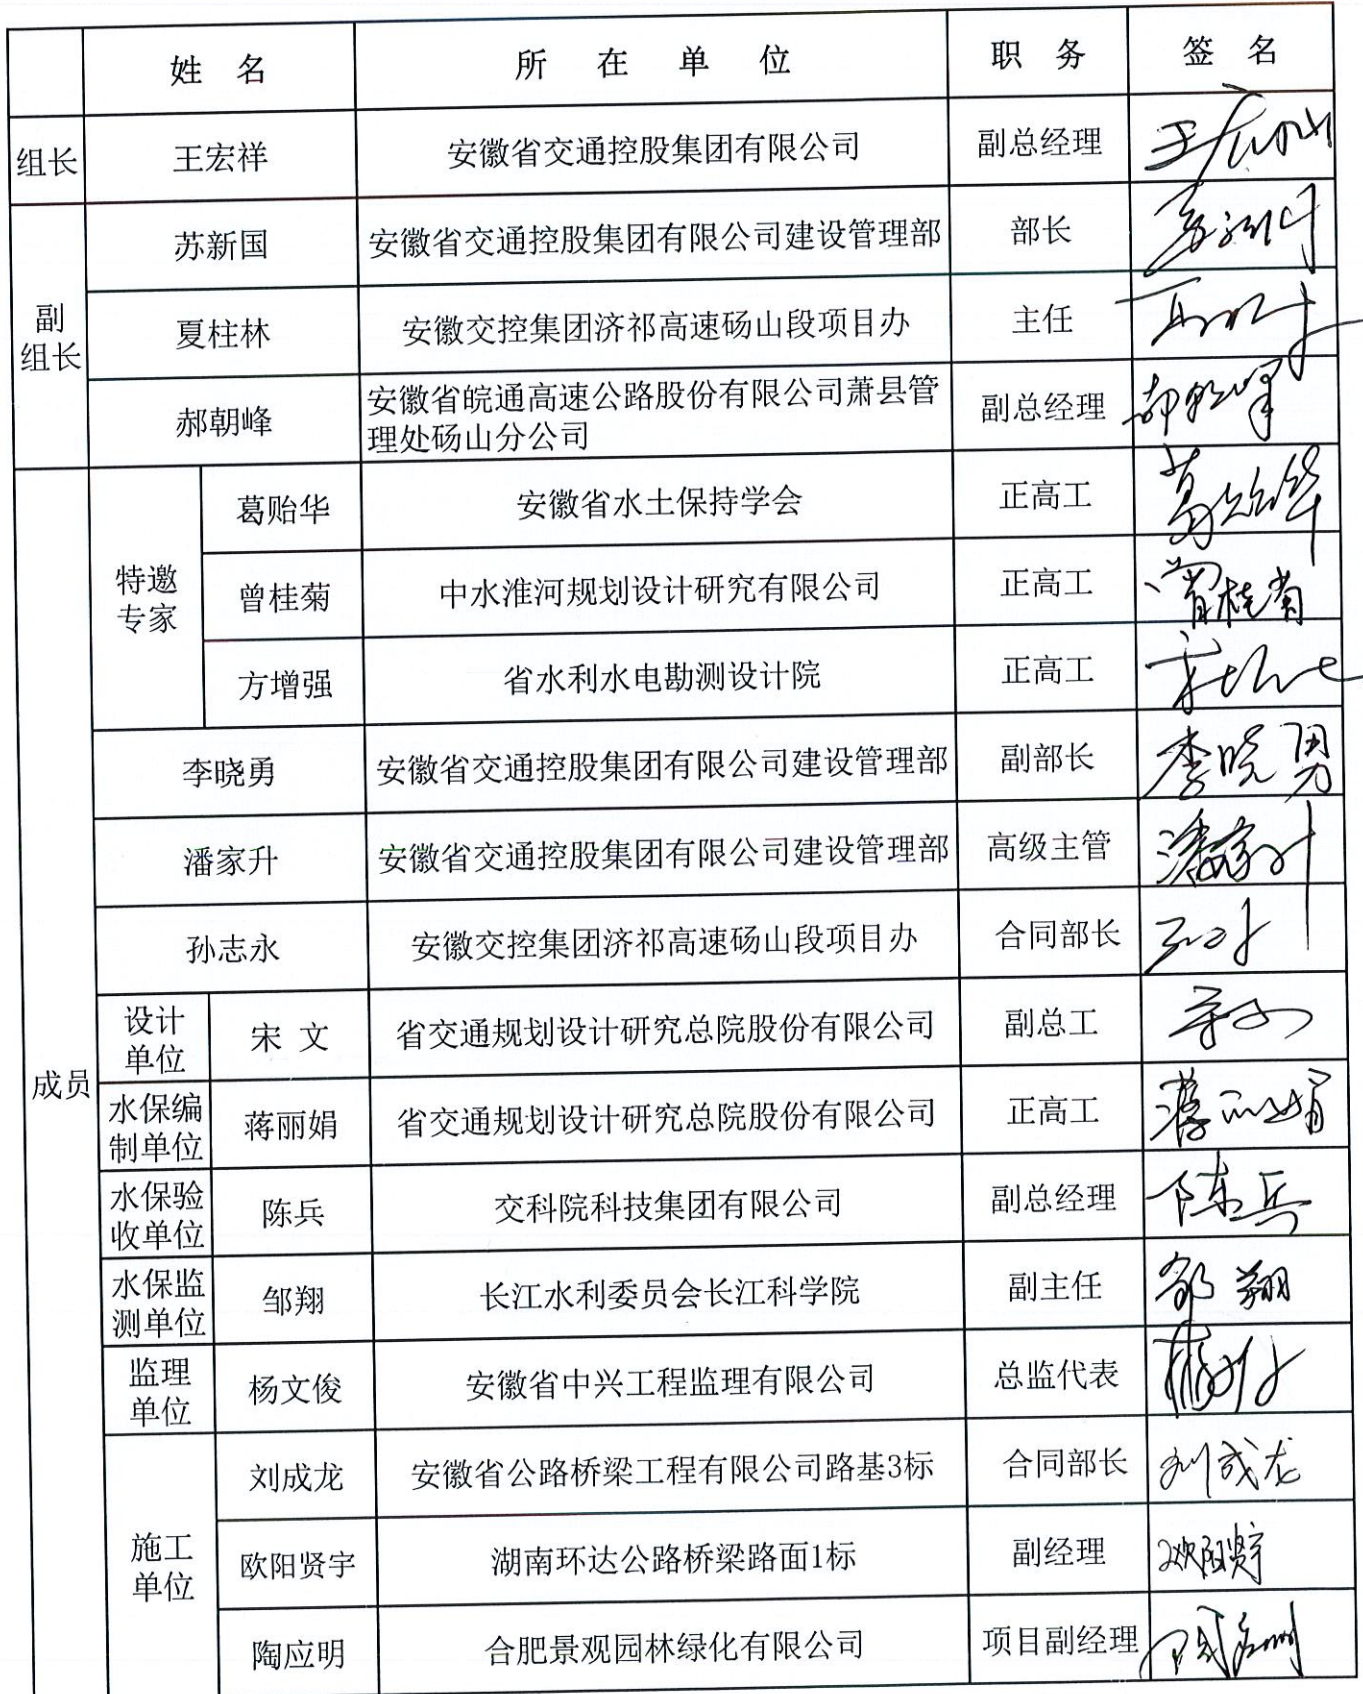 姓 名 所 在 单 位 职 务 签 名
组长 王宏祥 安徽省交通控股集团有限公司 副总经理
副
组长
苏新国 安徽省交通控股集团有限公司建设管理部 部长
夏柱林 安徽交控集团济祁高速砀山段项目办 主任
郝朝峰 安徽省皖通高速公路股份有限公司萧县管
理处砀山分公司
副总经理 郝朝峰
成员
特邀
专家
葛贻华 安徽省水土保持学会 正高工 葛贻华
曾桂菊 中水淮河规划设计研究有限公司 正高工 曾桂菊
方增强 省水利水电勘测设计院 正高工
李晓勇 安徽省交通控股集团有限公司建设管理部 副部长 李晓勇
潘家升 安徽省交通控股集团有限公司建设管理部 高级主管 潘家升
孙志永 安徽交控集团济祁高速砀山段项目办 合同部长
设计
单位
宋 文 省交通规划设计研究总院股份有限公司 副总工
水保编
制单位
蒋丽娟 省交通规划设计研究总院股份有限公司 正高工 蒋丽娟
水保验
收单位
陈兵 交科院科技集团有限公司 副总经理 陈兵
水保监
测单位
邹翔 长江水利委员会长江科学院 副主任 邹翔
监理
单位
杨文俊 安徽省中兴工程监理有限公司 总监代表
施工
单位
刘成龙 安徽省公路桥梁工程有限公司路基3标 合同部长 刘成龙
欧阳贤宇 湖南环达公路桥梁路面1标 副经理 欧阳贤宇
陶应明 合肥景观园林绿化有限公司 项目副经理